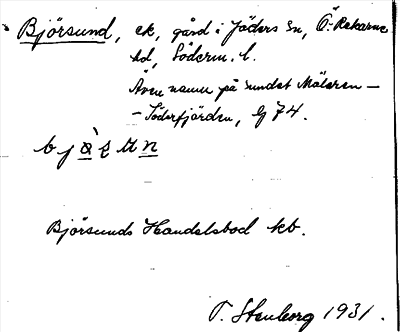 Björsund, ek, gård i Jäders sn, Ö: Rekarne
hd, Söderm. l.
Även namn på sundet Mälaren –
– Söderfjärden, Gj 74.
Björsunds Handelsbod kb.
T. Stenborg 1931.